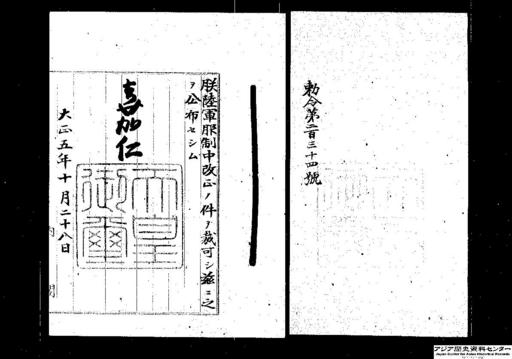 勅令第二百三十四號
朕陸軍服制中改正ノ件ヲ裁可シ茲ニ之
ヲ公布セシム
嘉仁
天皇御璽
大正五年十月二十八日
アジア歴史資料センター
Japan Center for Asian Historical Records